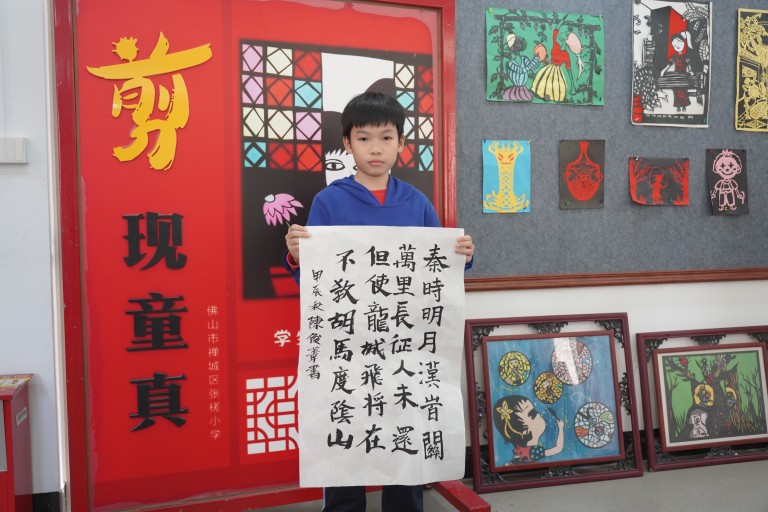 剪
现童真
佛山市禅城区张槎小学
学
秦時明月漢旹關
萬里長征人未還
但使龍城飛将在
不教胡馬度陰山
甲辰秋陳書